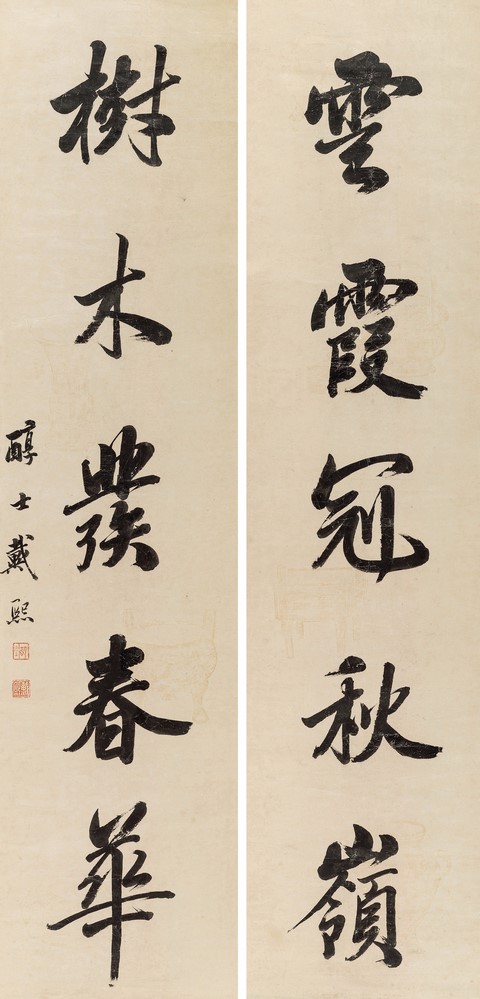 雲霞冠秋嶺
樹木發春華
醇士戴熙